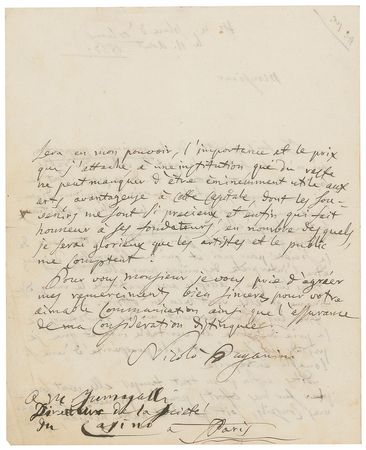 sera en mon pouvoir, l'importance et le prix
que j'attache à une institution qui du reste
ne peut manquer d'être éminemment utile aux
arts, avantageuse à cette Capitale, dont les sou-
venirs me sont si précieux et enfin qui fait
honneur à ses fondateurs, au nombre desquels
je serai glorieux que les artistes et le public
me comptent!
Pour vous monsieur je vous prie d'agréer
mes remerciments bien sincères pour votre
aimable Communication ainsi que l'assurance
de ma Considération distinguée.
Nicolò Paganini
A Mr
Directeur de la Société
du Casino à Paris